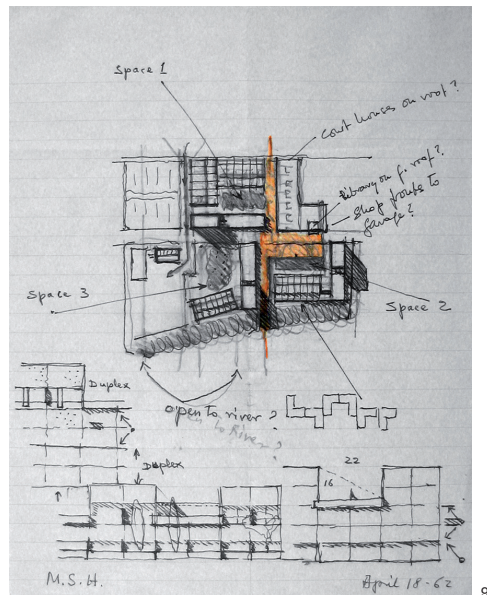 Space 1
Court houses on roof?
Library on g. roof?
Shop fronts to
garage?
Space 3
Space 2
Duplex
open to river?
to River?
Duplex
22
16
M.S.H.
April 18-62
9